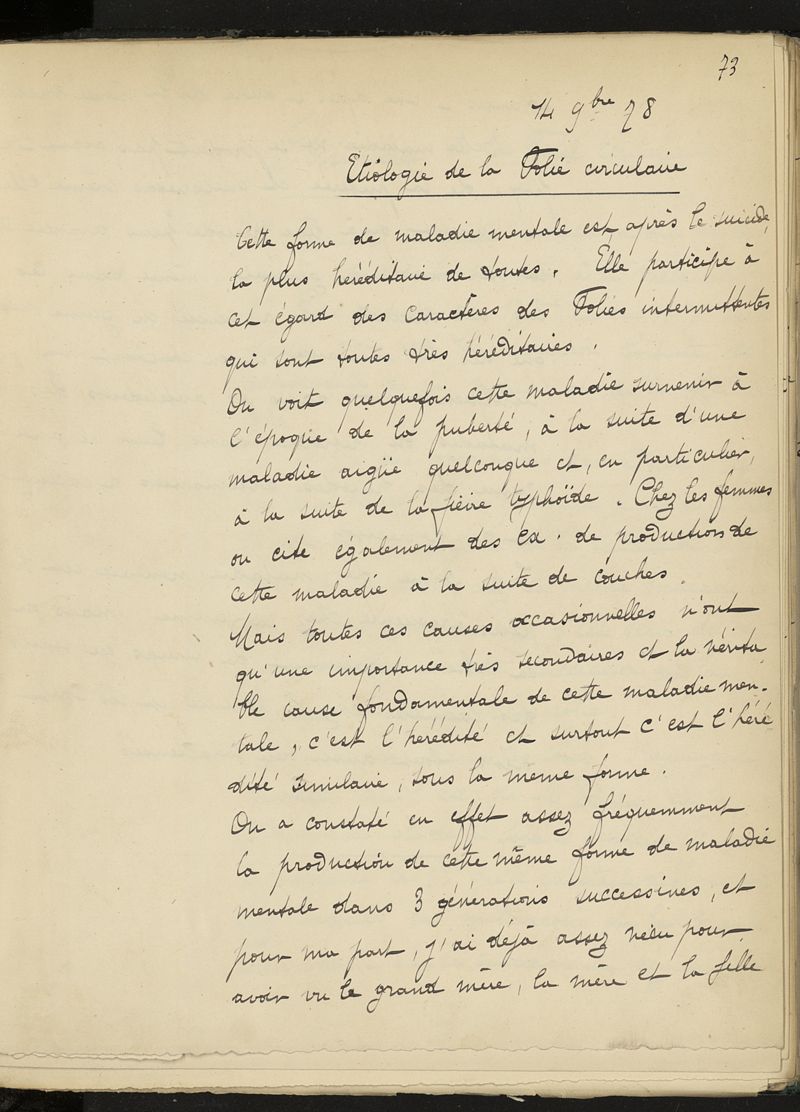 73
14 9bre 78
Etiologie de la Folie circulaire
Cette forme de maladie mentale est après le suicide,
la plus héréditaire de toutes. Elle participe à
cet égard des caractères des Folies intermittentes
qui sont toutes très héréditaires.
On voit quelquefois cette maladie survenir à
l'époque de la puberté, à la suite d'une
maladie aigüe quelconque et, en particulier,
à la suite de la fièvre typhoïde. Chez les femmes
on cite également des ex. de production de
cette maladie à la suite de couches.
Mais toutes ces causes occasionnelles n'ont
qu'une importance très secondaires et la vérita
ble cause fondamentale de cette maladie men-
tale, c'est l'hérédité et surtout c'est l'héré
dité similaire, sous la meme forme.
On a constaté en effet assez fréquemment
la production de cette même forme de maladie
mentale dans 3 générations successives, et
pour ma part, j'ai déjà assez vécu pour
avoir vu la grand mère, la mère et la fille